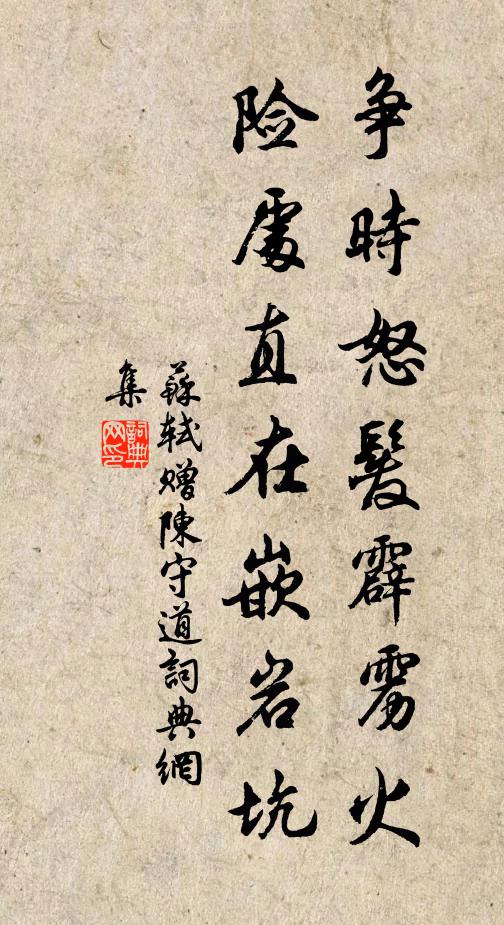 争時怒髮霹雳火
险處直在嵌岩坑
蘇軾赠陳守道詞典網
集
詞典
网印